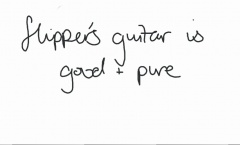 flipper's guitar is
good + pure